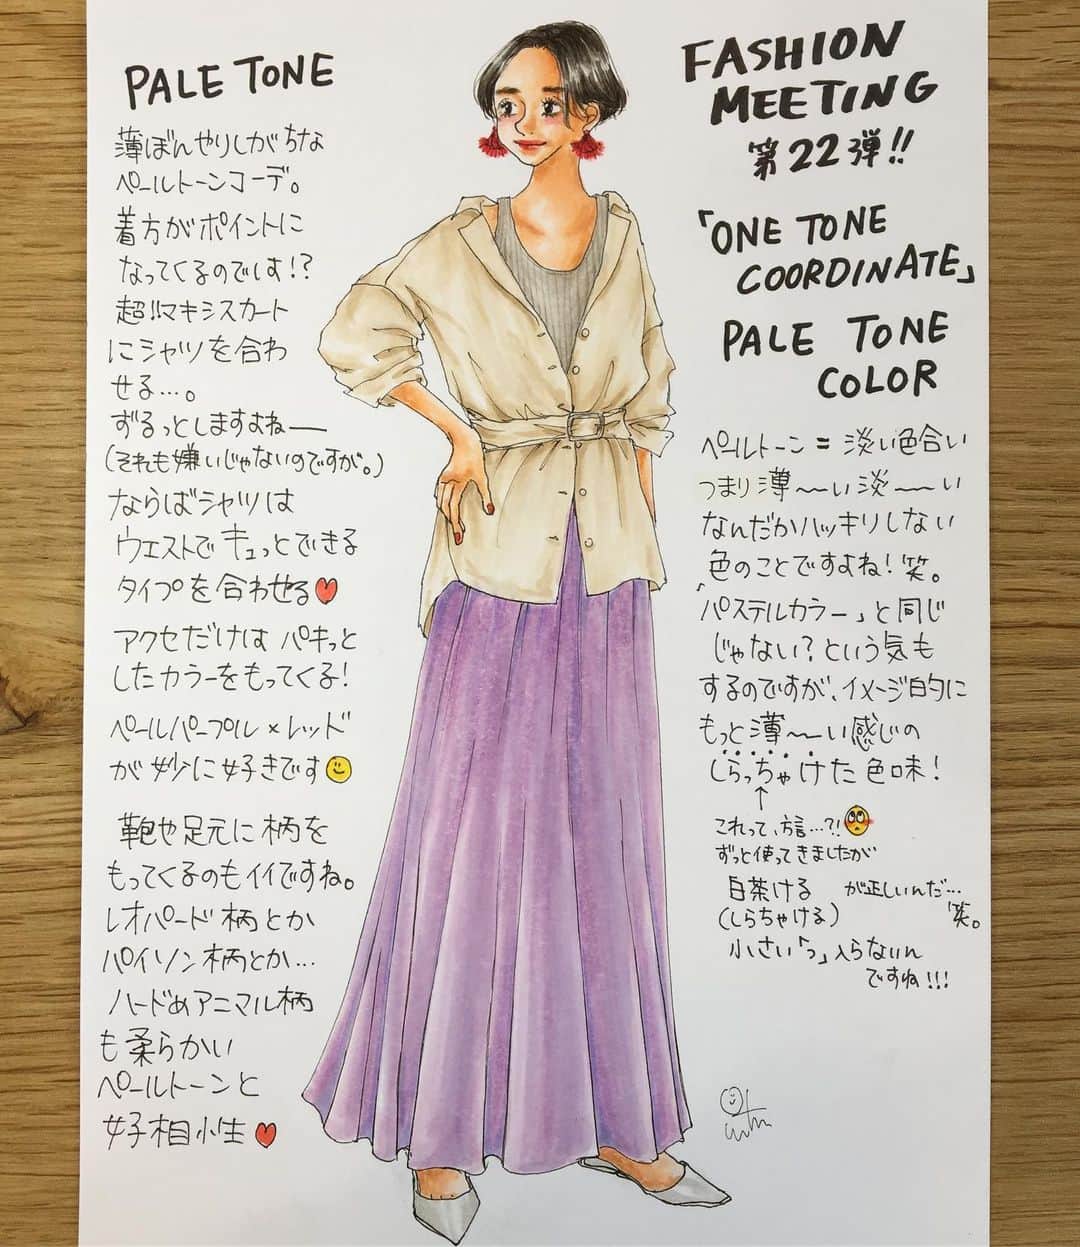 PALE TONE
薄ぼんやりしがちな
ペールトーンコーデ。
着方がポイントに
なってくるのでは!?
超!!マキシスカート
にシャツを合わ
せる…。
ずるっとしますよねー
(それも嫌いじゃないのですが。)
ならばシャツは
ウエストでキュっとできる
タイプを合わせる♥
アクセだけは パキっと
したカラーをもってくる!
ペールパープル×レッド
が妙に好きです
鞄や足元に柄を
もってくるのもイイですね。
レオパード柄とか
パイソン柄とか…
ハードめアニマル柄
も柔らかい
ペールトーンと
好相性♥
FASHION
MEETING
第22弾!!
「ONE TONE
COORDINATE」
PALE TONE
COLOR
ペールトーン=淡い色合い
つまり薄〜〜い淡〜〜い
なんだかハッキリしない
色のことですよね!笑。
「パステルカラー」と同じ
じゃない?という気も
するのですが、イメージ的に
もっと薄〜〜い感じの
しらっちゃけた色味!
↑
これって、方言…?!
ずっと使ってきましたが
白茶ける が正しいんだ…
(しらちゃける) 笑。
小さい「っ」入らないん
ですね!!!